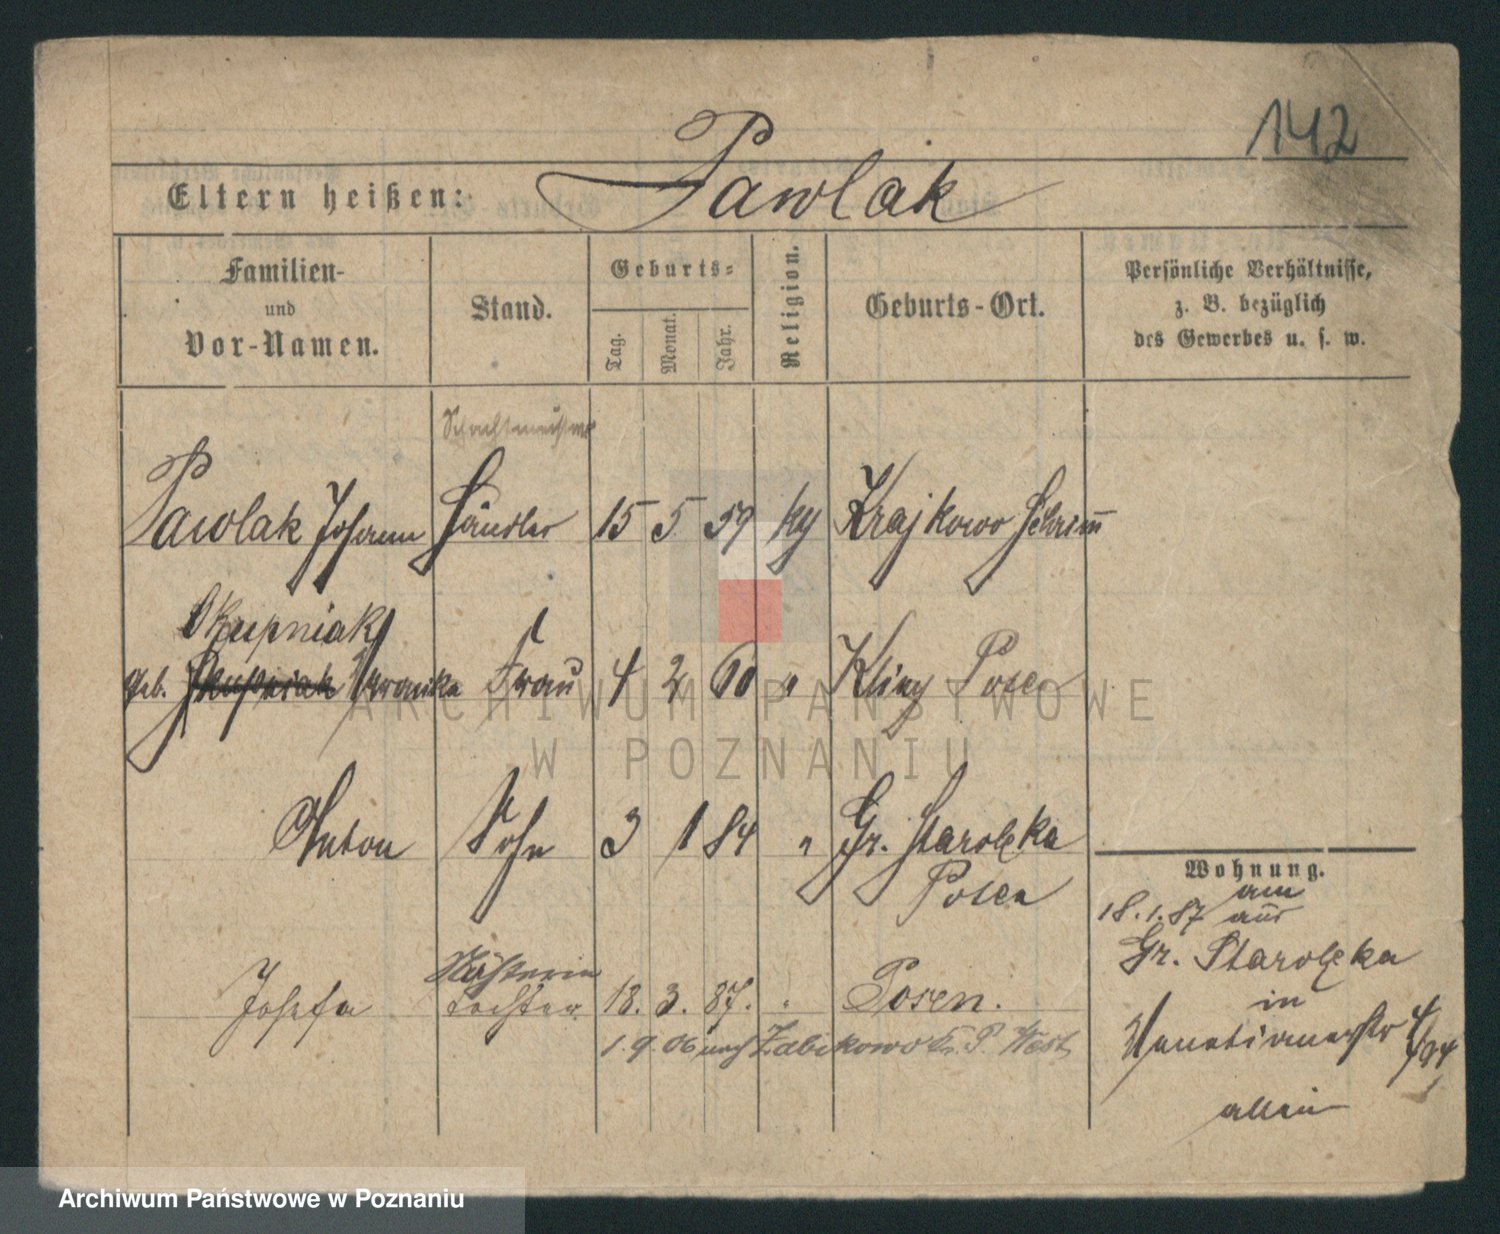 142
Eltern heißen: Pawlak
Familien-
und
Vor-Namen.
Stand.
Geburts-
Tag.
Monat.
Jahr.
Religion.
Geburts-Ort.
Persönliche Verhältnisse,
z. B. bezüglich
des Gewerbes u. s. w.
Schachtmeister
Pawlak Johann Händler 15 5 59 kg Krajkowo Schrimm
Skupniak
geb. Frau 4 2 60 " Posen
ARCHIWUM PAŃSTWOWE
W POZNANIU
Anton Sohn 3 1 84 " Gr. Starolęka
Posen
Wohnung.
18.1.87 am
aus
Gr. Starolęka
in
allein
Josefa Tochter 18. 3. 87. " Posen.
1.9.06 nach Zabikowo Kr. P. West
Archiwum Państwowe w Poznaniu